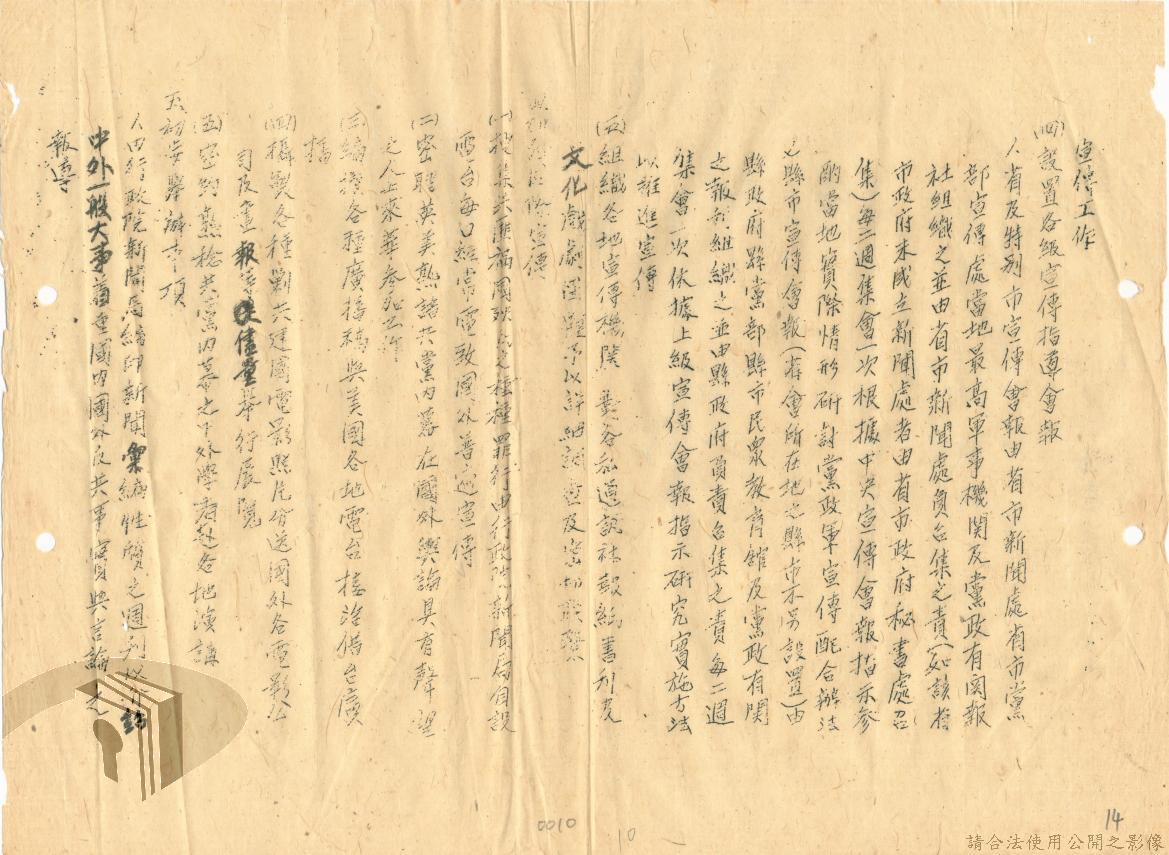 宣傳工作
(四)設置各級宣傳指導會報
人省及特別市宣傳會報由省市新聞處省市黨
部宣傳處當地最高軍事機關及黨政有關報
社組織之並由省市新聞處負召集之責(如該省
市政府未成立新聞處者由省市政府秘書處召
集)每二週集會一次根據中央宣傳會報指示參
酌當地實際情形研討黨政軍宣傳配合辦法
縣市宣傳會報(省會所在地之縣市不另設置)由
縣政府縣黨部縣市民眾教育館及黨政有關
之報社組織之並由縣政府負責召集之責每二週
集會一次依據上級宣傳會報指示研究實施方法
以推進宣傳
(五)組織各地宣傳機關 對各私通訊社報紙書刊及
文化戲劇團體予以詳細調查及密切聯繫
宣傳
(一)搜集共匪禍國殃民之種種罪行由行政院新聞局自設
電台每日經常電致國外普遍宣傳
(二)密聘英美熟諳共黨內幕在國外輿論具有聲望
之人士來華參加工作
(三)編撰各種廣播稿與美國各地電台接洽借台廣
播
(四)攝製各種剿共建國電影照片分送國外各電影公
司及畫報等儘量舉行展覽
(五)密約熟稔共黨內幕之中外學者赴各地演講
五初步舉辦事項
人由行政院新聞局編印新聞彙編性質之週刊以介紹
中外一般大事着重國內國外反共事實與言論之
報導
0010
10
14
請合法使用公開之影像